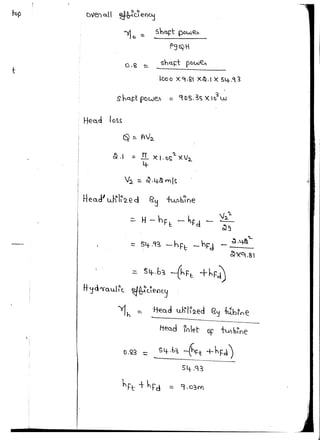 overall efficiency
ηo = Shaft power / ρgQH
0.8 = shaft power / 1000 × 9.81 × 2.1 × 54.93
Shaft power = 905.35 × 10³ W
Head loss
Q = AV2
2.1 = π/4 × 1.05² × V2
V2 = 2.42 m/s
Head utilized By turbine
= H − hft − hfd − V2²/2g
= 54.93 − hft − hfd − 2.42²/2×9.81
= 54.63 − (hft + hfd)
Hydraulic efficiency
ηh = Head utilized By turbine / Head inlet of turbine
0.83 = 54.63 − (hft + hfd) / 54.93
hft + hfd = 9.03m